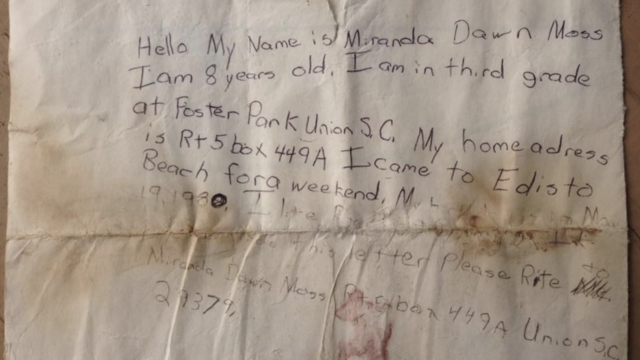 Hello My Name is Miranda Dawn Moss
I am 8 years old. I am in third grade
at Foster Park Union S.C. My home adress
is Rt 5 box 449A I came to Edisto
Beach for a weekend,
19, 198 I
this letter Please Rite to
Miranda Dawn Moss Rt 5 box 449A Union S.C.
29379,